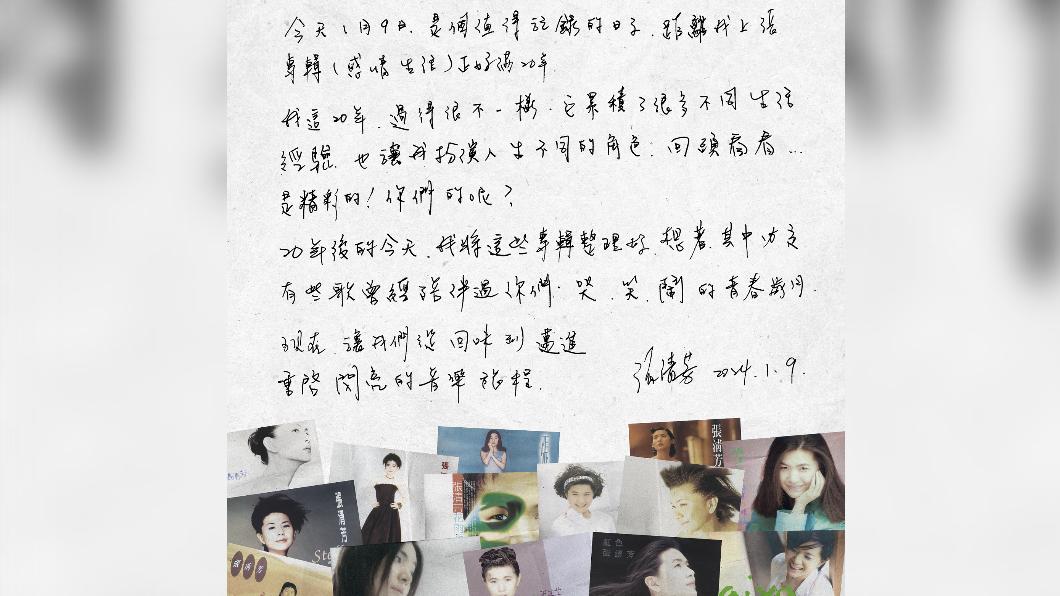 今天1月9日. 是個值得記錄的日子. 距離我上張
專輯(感情生活)正好滿20年.
我這20年. 過得很不一樣. 它累積了很多不同生活
經驗. 也讓我扮演人生不同的角色. 回頭看看...
是精彩的! 你們的呢?
20年後的今天. 我將這些專輯整理好. 想著. 其中必定
有些歌曾經陪伴過你們. 哭. 笑. 鬧的青春歲月.
現在. 讓我們從回味到邁進
重啓閃亮的音樂旅程.
張清芳 2024.1.9.
張清芳
張清芳
張清芳
紅色
張清芳
張清芳